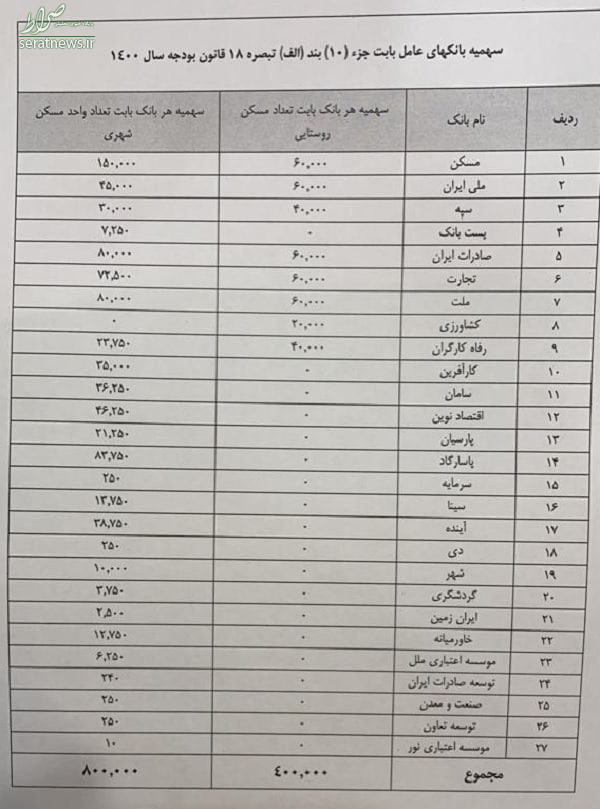 صراط
seratnews.ir
سهمیه بانکهای عامل بابت جزء (۱۰) بند (الف) تبصره ۱۸ قانون بودجه سال ۱۴۰۰
ردیف نام بانک سهمیه هر بانک بابت تعداد مسکن روستایی سهمیه هر بانک بابت تعداد واحد مسکن شهری
۱ مسکن ۶۰,۰۰۰ ۱۵۰,۰۰۰
۲ ملی ایران ۶۰,۰۰۰ ۴۵,۰۰۰
۳ سپه ۴۰,۰۰۰ ۳۰,۰۰۰
۴ پست بانک ۰ ۷,۲۵۰
۵ صادرات ایران ۶۰,۰۰۰ ۸۰,۰۰۰
۶ تجارت ۶۰,۰۰۰ ۷۲,۵۰۰
۷ ملت ۶۰,۰۰۰ ۸۰,۰۰۰
۸ کشاورزی ۲۰,۰۰۰ ۰
۹ رفاه کارگران ۴۰,۰۰۰ ۲۳,۷۵۰
۱۰ کارآفرین ۰ ۳۵,۰۰۰
۱۱ سامان ۰ ۳۶,۲۵۰
۱۲ اقتصاد نوین ۰ ۴۶,۲۵۰
۱۳ پارسیان ۰ ۲۱,۲۵۰
۱۴ پاسارگاد ۰ ۸۳,۷۵۰
۱۵ سرمایه ۰ ۲۵۰
۱۶ سینا ۰ ۱۳,۷۵۰
۱۷ آینده ۰ ۳۸,۷۵۰
۱۸ دی ۰ ۲۵۰
۱۹ شهر ۰ ۱۰,۰۰۰
۲۰ گردشگری ۰ ۳,۷۵۰
۲۱ ایران زمین ۰ ۲,۵۰۰
۲۲ خاورمیانه ۰ ۱۲,۷۵۰
۲۳ موسسه اعتباری ملل ۰ ۶,۲۵۰
۲۴ توسعه صادرات ایران ۰ ۲۴۰
۲۵ صنعت و معدن ۰ ۲۵۰
۲۶ توسعه تعاون ۰ ۲۵۰
۲۷ موسسه اعتباری نور ۰ ۱۰
مجموع ۴۰۰,۰۰۰ ۸۰۰,۰۰۰